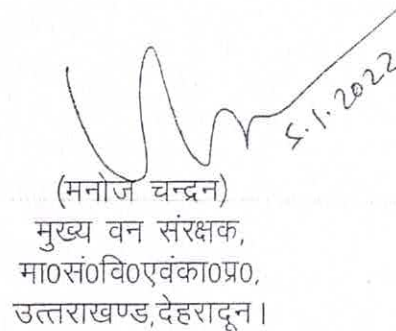 5.1.2022
(मनोज चन्द्रन)
मुख्य वन संरक्षक,
मा0सं0वि0एवंका0प्र0,
उत्तराखण्ड,देहरादून।